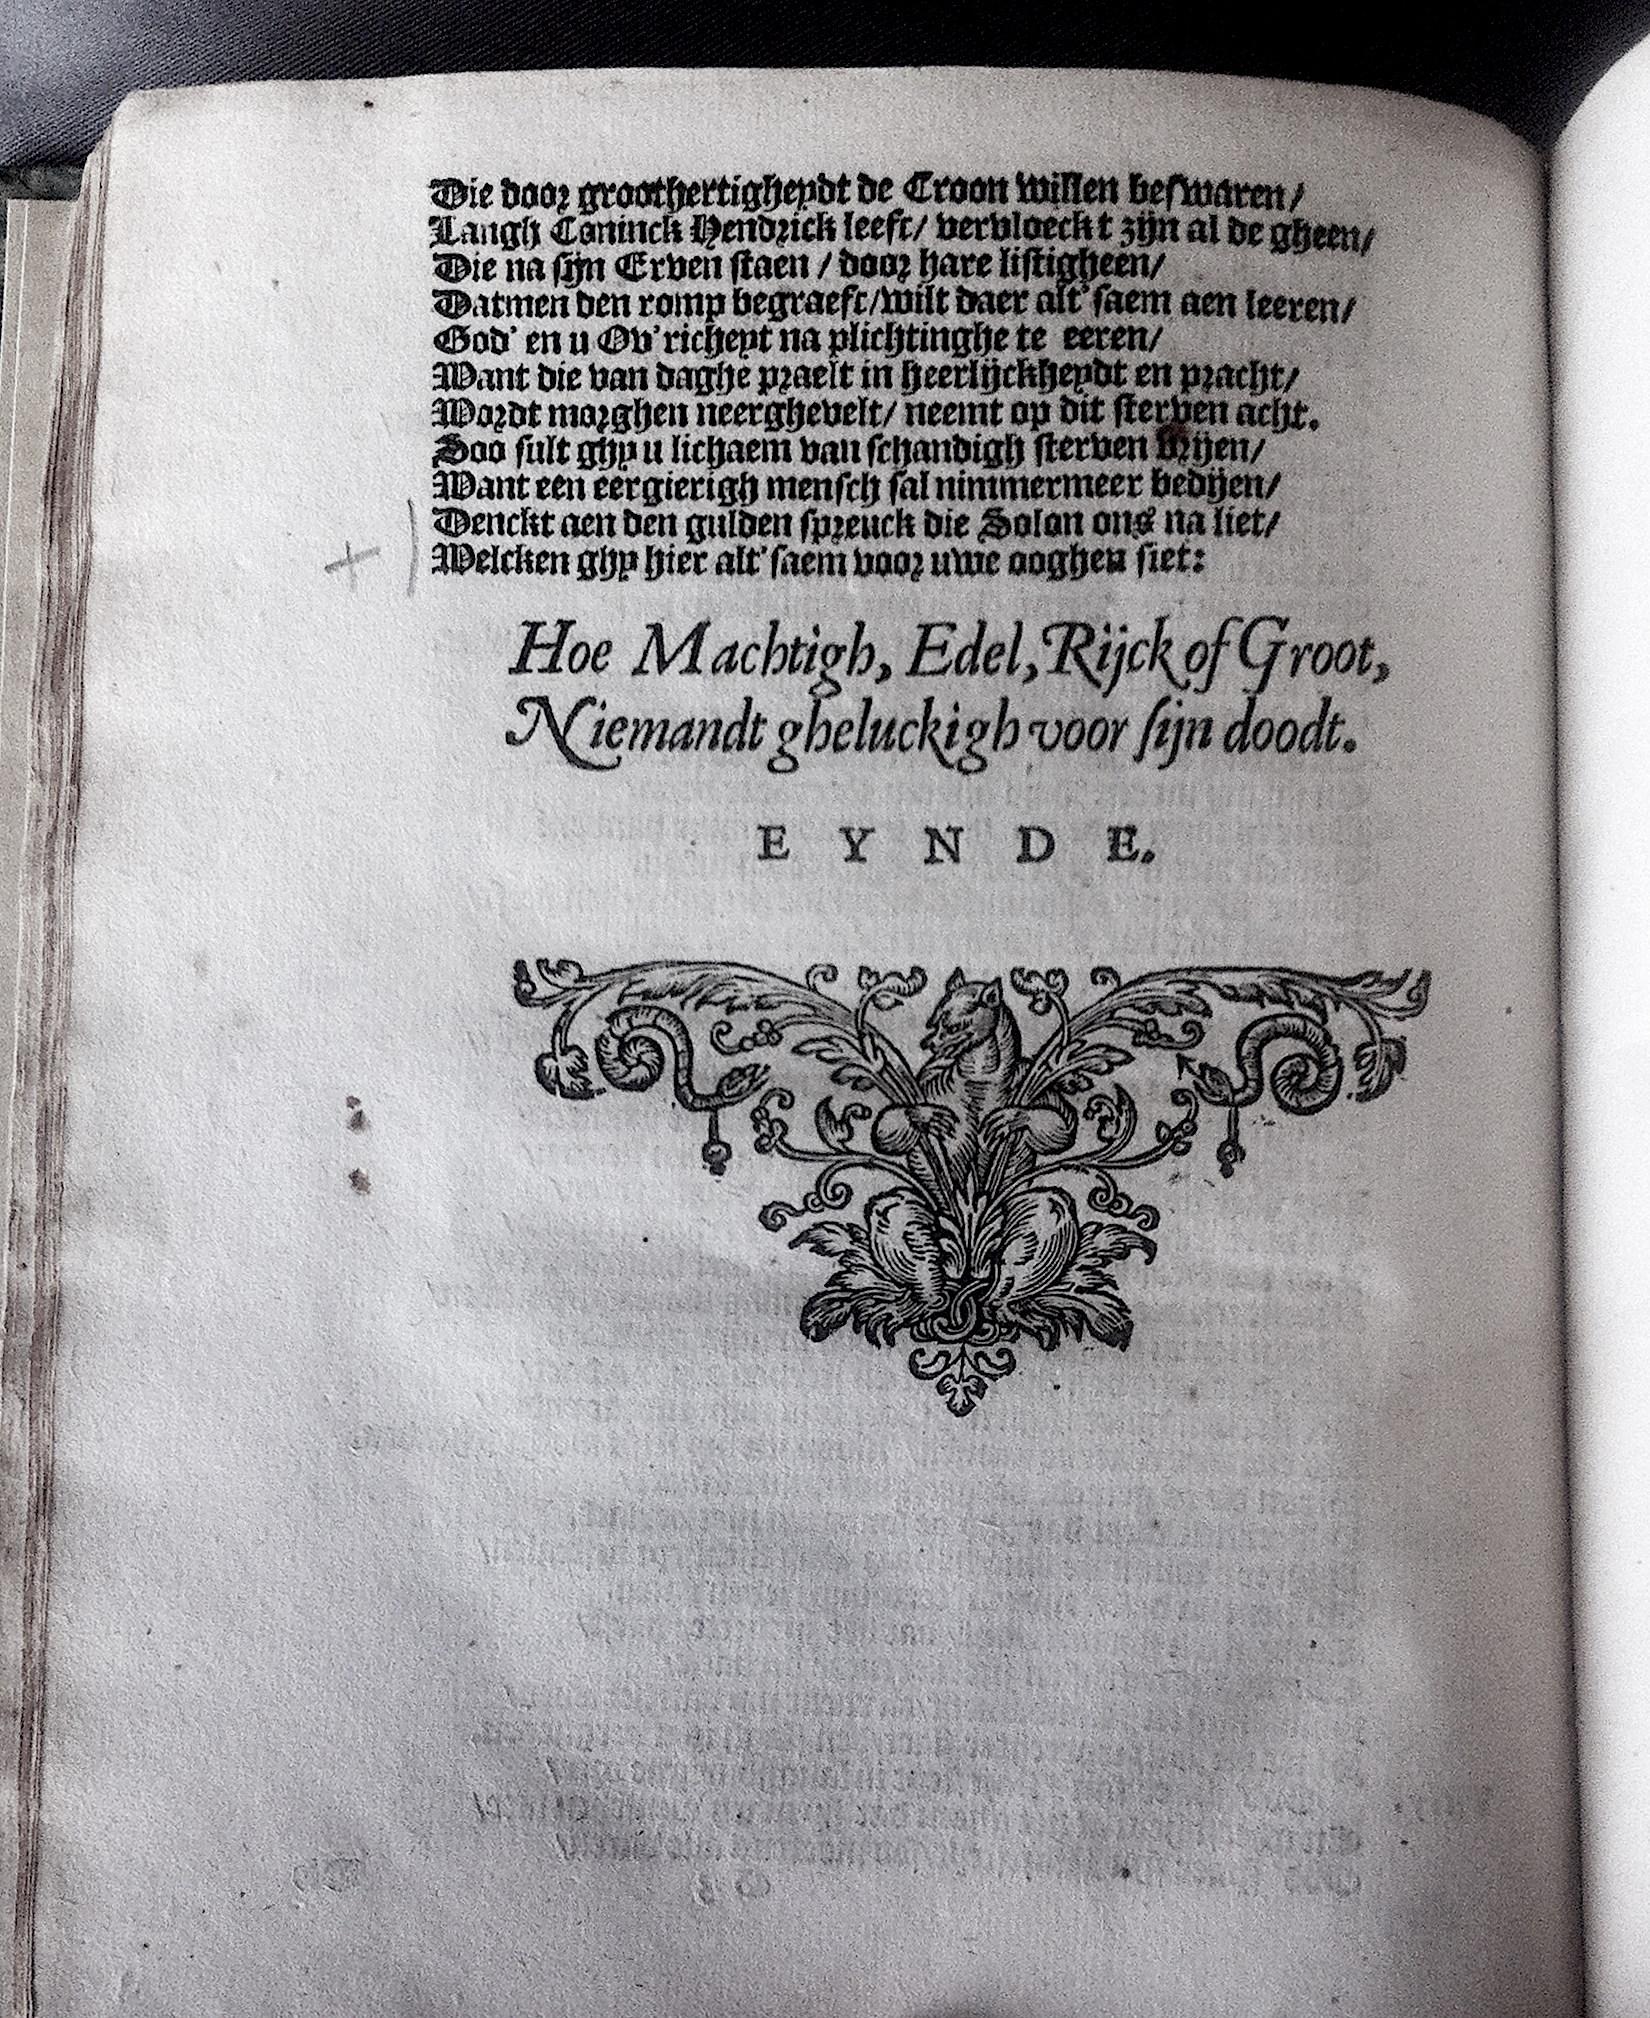 Die door groothertigheydt de Croon willen beswaren/
Langh Coninck Hendrick leeft/ vervloeckt zijn al de gheen/
Die na sijn Erven staen / door hare listigheen/
Datmen den romp begraeft/wilt daer alt'saem aen leeren/
God' en u Ov'richeyt na plichtinghe te eeren/
Want die van daghe praelt in heerlijckheydt en pracht/
Wordt morghen neerghevelt/ neemt op dit sterven acht.
Soo sult ghy u lichaem van schandigh sterven vrijen/
Want een eergierigh mensch sal nimmermeer bedijen/
Denckt aen den gulden spreuck die Solon ons na liet/
Welcken ghy hier alt'saem voor uwe ooghen siet:
Hoe Machtigh, Edel, Rijck of Groot,
Niemandt gheluckigh voor sijn doodt.
E Y N D E.